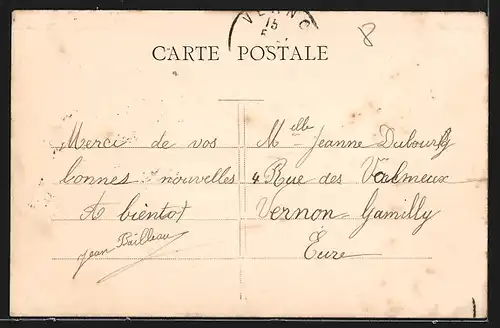 VERNO
15
8
CARTE POSTALE
Merci de vos
bonnes nouvelles
A bientot
Jean Bailleau
Melle Jeanne Dubourg
4 Rue des Valmeux
Vernon Gamilly
Eure